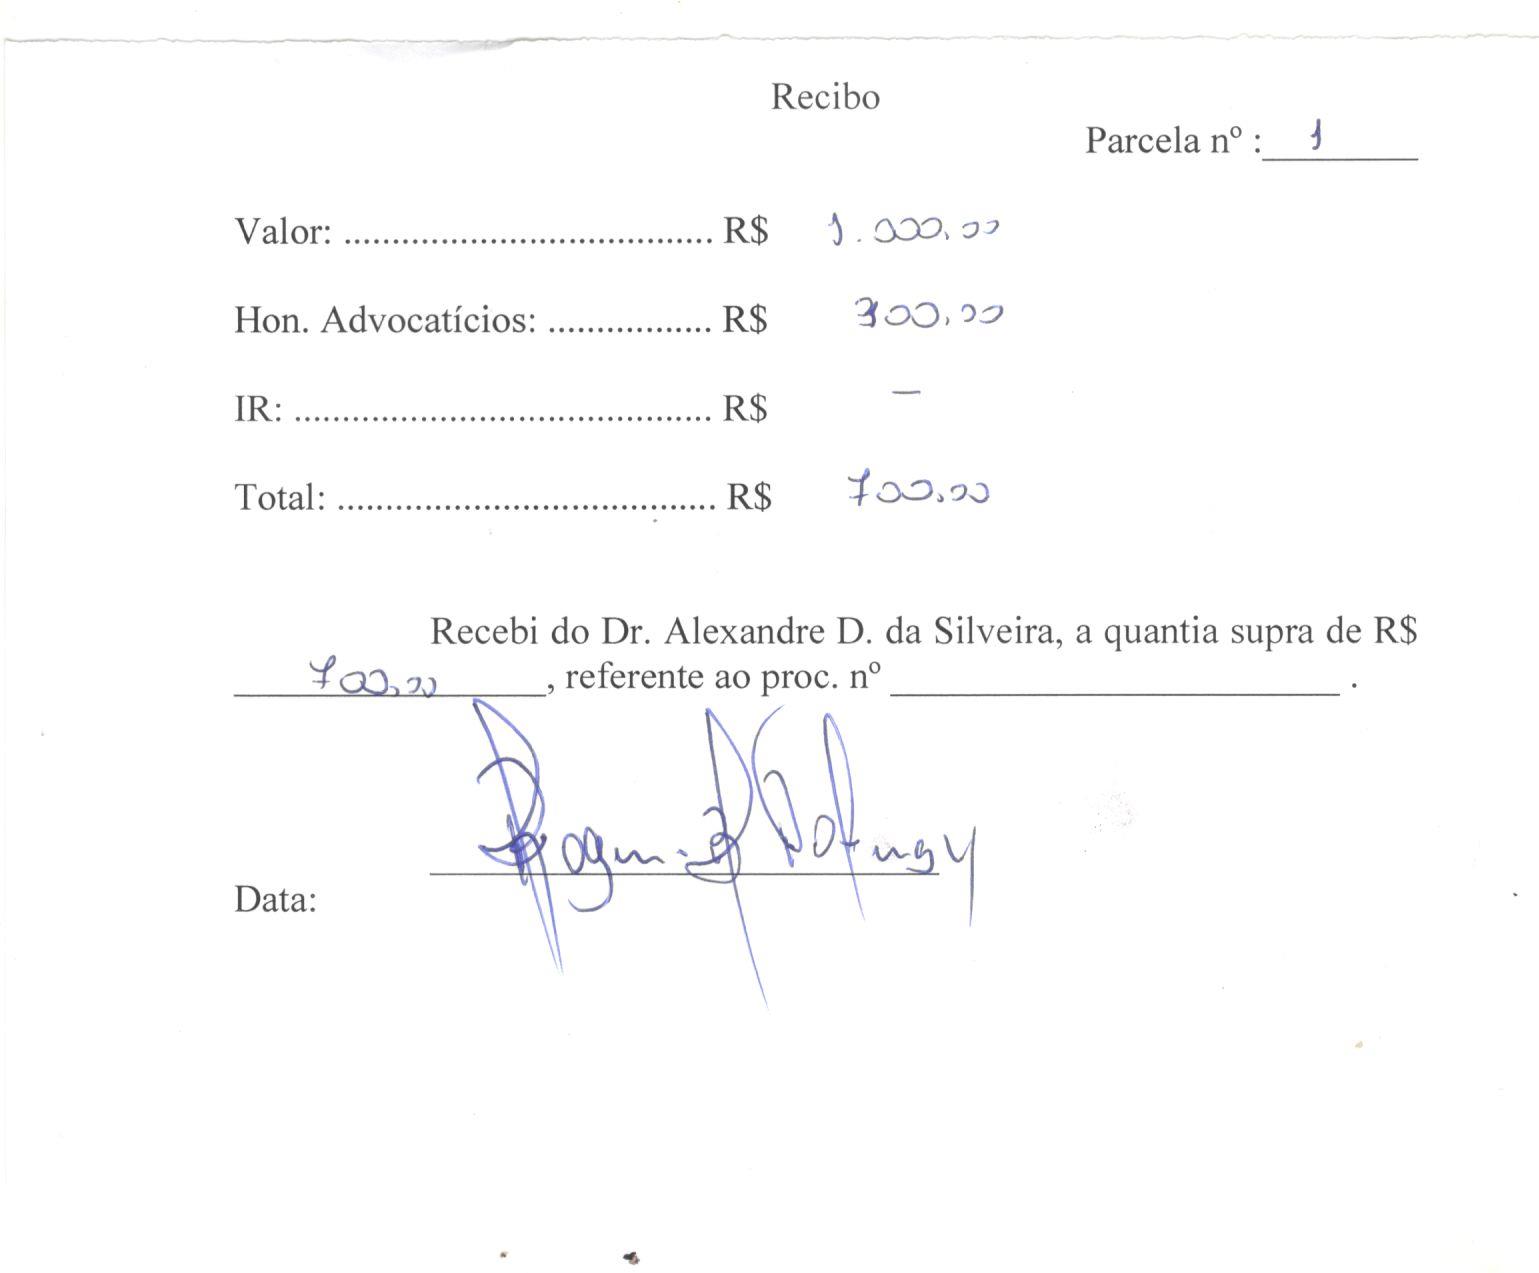 Recibo
Parcela nº : 1
Valor: ...................................... R$ 1.000,00
Hon. Advocatícios: ................. R$ 300,00
IR: ........................................... R$ —
Total: ....................................... R$ 700,00
Recebi do Dr. Alexandre D. da Silveira, a quantia supra de R$
700,00, referente ao proc. nº ________________________ .
Data: